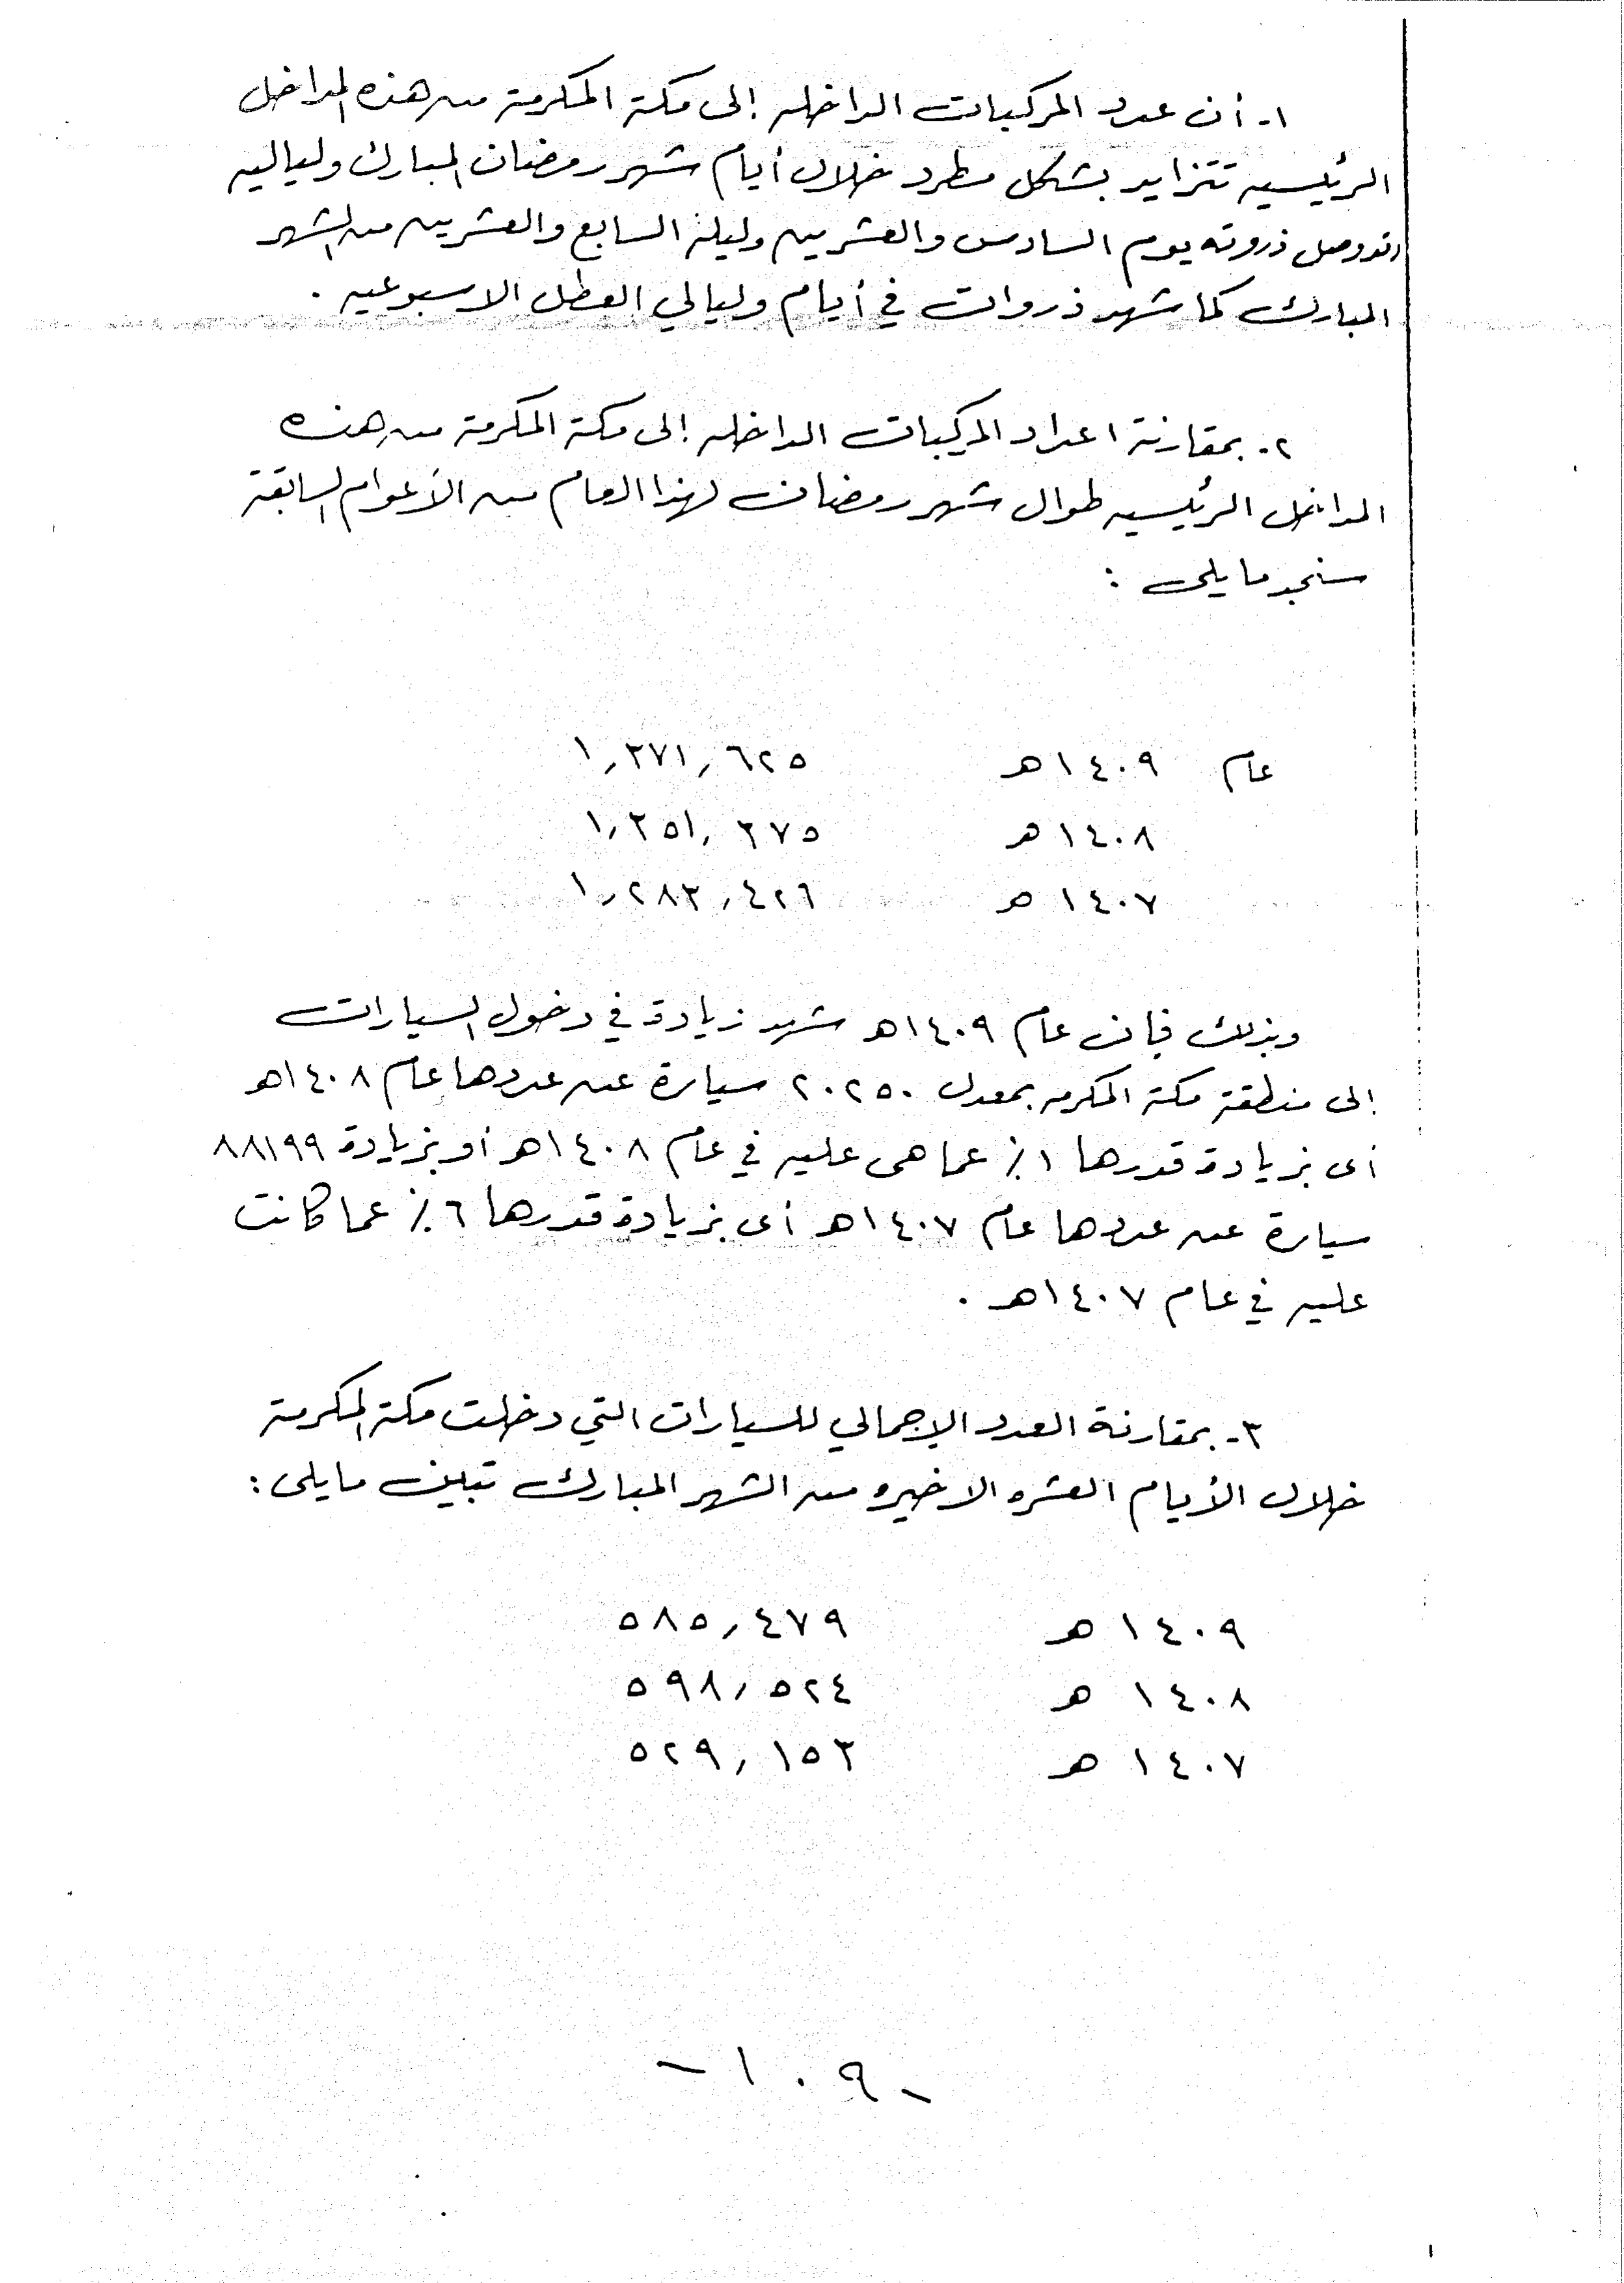 ١- أن عدد المركبات الداخله إلى مكة المكرمة من هذه المداخل
الرئيسيه تتزايد بشكل مطرد خلال أيام شهر رمضان المبارك ولياليه
وصل ذروته يوم السادس والعشرين وليلة السابع والعشرين من الشهر
المبارك كما شهد ذروات في أيام وليالي العطل الاسبوعيه .
٢- بمقارنة اعداد المركبات الداخله إلى مكة المكرمة من هذه
المداخل الرئيسيه طوال شهر رمضان لهذا العام من الأعوام السابقة
سنجد مايلى :
عام ١٤٠٩ هـ ١,٣٧١,٦٢٥
١٤٠٨ هـ ١,٣٥١,٣٧٥
١٤٠٧ هـ ١,٢٨٣,٤٢٦
وبذلك فإن عام ١٤٠٩هـ شهد زيادة في دخول السيارات
إلى منطقة مكة المكرمه بمعدل ٢٠٢٥٠ سيارة عن عددها عام ١٤٠٨هـ
أى بزيادة قدرها ١٪ عما هى عليه في عام ١٤٠٨هـ أو بزيادة ٨٨١٩٩
سيارة عن عددها عام ١٤٠٧هـ أى بزيادة قدرها ٦٪ عما كانت
عليه في عام ١٤٠٧هـ .
٣- بمقارنة العدد الإجمالي للسيارات التي دخلت مكة المكرمة
خلال الأيام العشره الاخيره من الشهر المبارك تبين مايلى :
١٤٠٩ هـ ٥٨٥,٤٧٩
١٤٠٨ هـ ٥٩٨,٥٢٤
١٤٠٧ هـ ٥٢٩,١٥٣
- ١٠٩ -